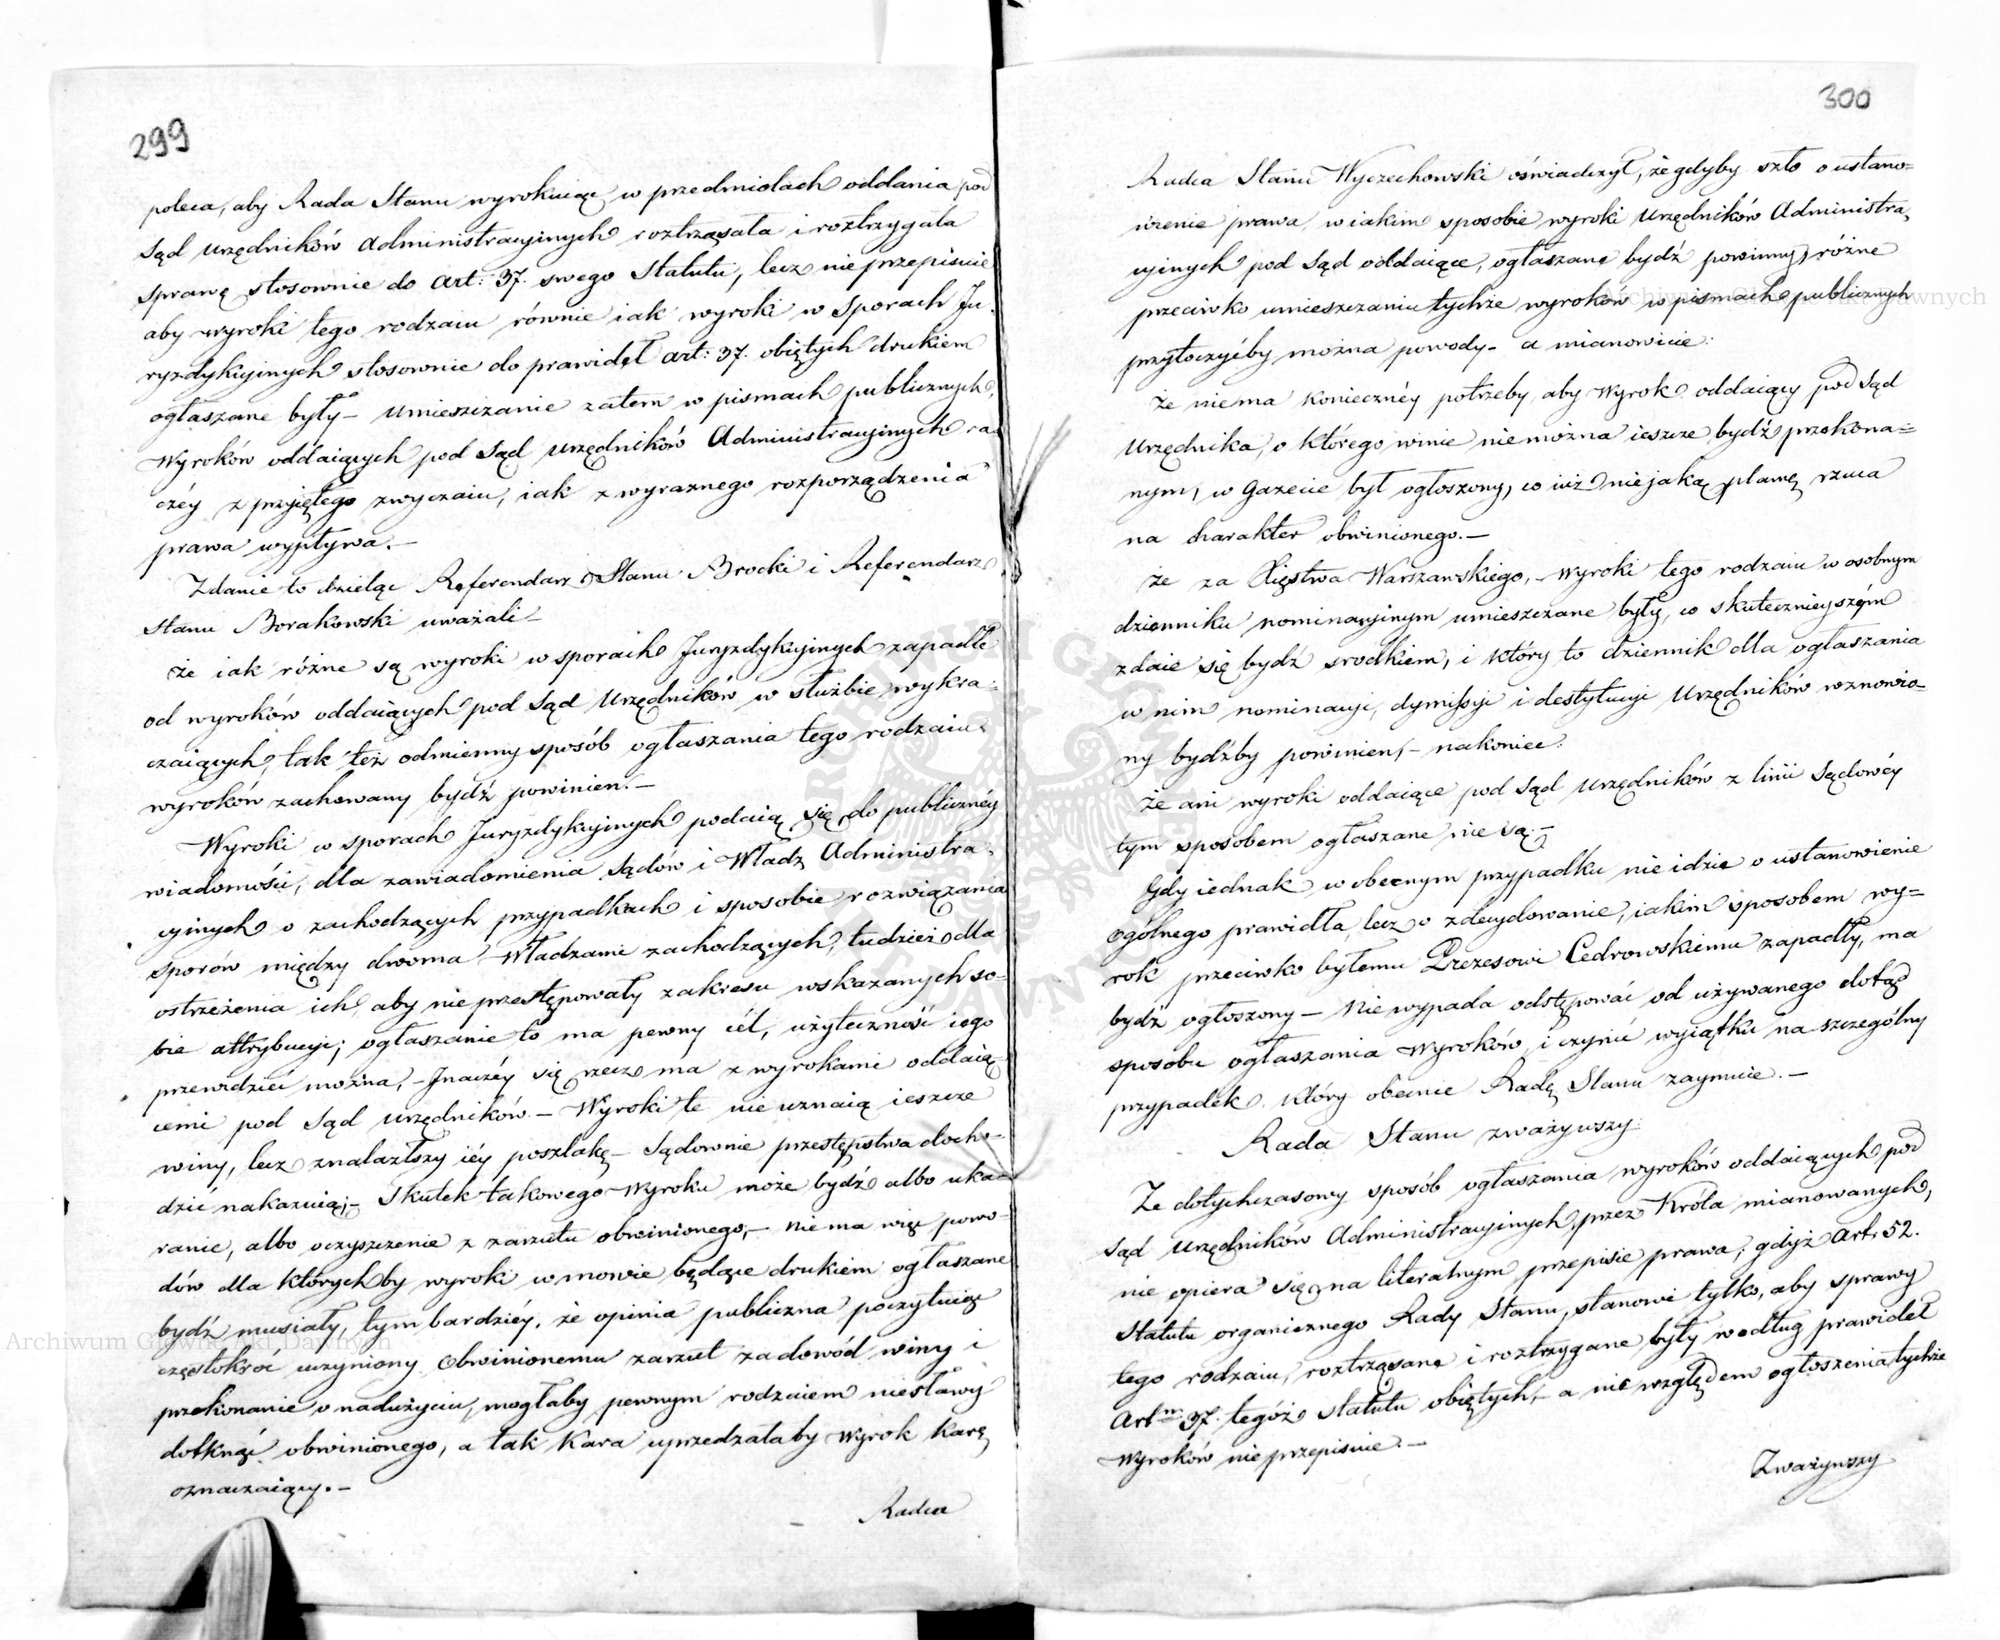 299
poleca, aby Rada Stanu wyrokuiąc w przedmiotach oddania pod
Sąd Urzędników Administracyinych roztrząsała i roztrzygała
sprawę stosownie do art: 37. swego Statutu, lecz nie przepisuie
aby wyroki tego rodzaiu równie iak wyroki w sporach Ju-
ryzdykcyinych stosownie do prawideł art: 37. obiętych drukiem
ogłaszane były – umieszczanie zatem w pismach publicznych,
Wyroków oddaiących pod Sąd Urzędników Administracyinych ra-
czéy z przyiętego zwyczaiu, iak z wyraznego rozporządzenia
prawa wypływa. –
Zdanie to dzieląc Referendarz Stanu Brocki i Referendarz
Stanu Borakowski uważali –
że iak różne są wyroki w sporach Juryzdykcyinych zapadłe
od wyroków oddaiących pod Sąd Urzędników w służbie wykra-
czaiących, tak też odmienny sposób ogłaszania tego rodzaiu
wyroków zachowany bydź powinien. –
Wyroki w sporach Juryzdykcyinych podaią się do publicznéy
wiadomości, dla zawiadomienia Sądów i Władz Administra-
cyinych o zachodzących przypadkach i sposobie rozwiązania
sporów między dwoma Władzami zachodzących, tudzież dla
ostrzeżenia ich, aby nie przestępowały zakresu wskazanych so-
bie attrybucyi; ogłaszanie to ma pewny cél, użyteczność iego
przewidzieć można, – Jnaczéy się rzecz ma z wyrokami oddaią-
cemi pod Sąd Urzędników. – Wyroki te nie uznaią ieszcze
winy, lecz znalazłszy iéy poszlakę – Sądownie przestępstwa docho-
dzić nakazuią; – Skutek takowego Wyroku może bydź albo uka-
ranie, albo oczyszczenie z zarzutu obwinionego, – niema więc powo-
dów dla którychby wyroki w mowie będące drukiem ogłaszane
bydź musiały, tym bardziéy, że opinia publiczna poczytuiąc
częstokroć uczyniony Obwinionemu zarzut za dowód winy i
przekonanie o nadużyciu, mogłaby pewnym rodzaiem niesławy
dotknąć obwinionego, a tak kara uprzedzałaby wyrok karę
oznaczaiący. –
Radca
300
Radca Stanu Wyczechowski oświadczył, że gdyby szło o ustano-
wienie prawa, w iakim sposobie wyroki Urzędników Administra-
cyinych pod Sąd oddaiące, ogłaszane bydź powinny, różne
przeciwko umieszczaniu tychże wyroków w pismach publicznych
przytoczyćby można powody – a mianowicie:
że niema koniecznéy potrzeby, aby Wyrok oddaiący pod Sąd
Urzędnika, o którego winie niemożna ieszcze bydź przekona-
nym, w Gazecie był ogłoszony, co iuż nieiaką plamę rzuca
na charakter obwinionego. –
że za Xięstwa Warszawskiego, – wyroki tego rodzaiu w osobnym
dzienniku nominacyinym umieszczane były, co skutecznieyszém
zdaie się bydź srodkiem, i który to dziennik dla ogłaszania
w nim nominacyi, dymissyi i destytucyi Urzędników wznowio-
ny bydźby powinien, – nakoniec:
że ani wyroki oddaiące pod Sąd Urzędników z linii Sądowéy
tym sposobem ogłaszane nie są. –
Gdy iednak w obecnym przypadku nie idzie o ustanowienie
ogólnego prawidła, lecz o zdecydowanie, iakim sposobem wy-
rok przeciwko byłemu Prezesowi Cedrowskiemu zapadły, ma
bydź ogłoszony – Nie wypada odstępować od używanego dotąd
sposobu ogłaszania Wyroków, i czynić wyiątku na szczególny
przypadek który obecnie Radę Stanu zaymuie. –
Rada Stanu zważywszy:
Ze dotychczasowy sposób ogłaszania wyroków oddaiących pod
Sąd Urzędników Administracyinych, przez Króla mianowanych,
nie opiera się na literalnym przepisie prawa, gdyż Art. 52.
Statutu organicznego Rady Stanu, stanowi tylko, aby sprawy
tego rodzaiu, roztrząsane i roztrzygane były według prawideł
Art^m 37. tegóż Statutu obiętych, – a nic względem ogłoszenia tychże
Wyroków nie przepisuie. –
Zważywszy